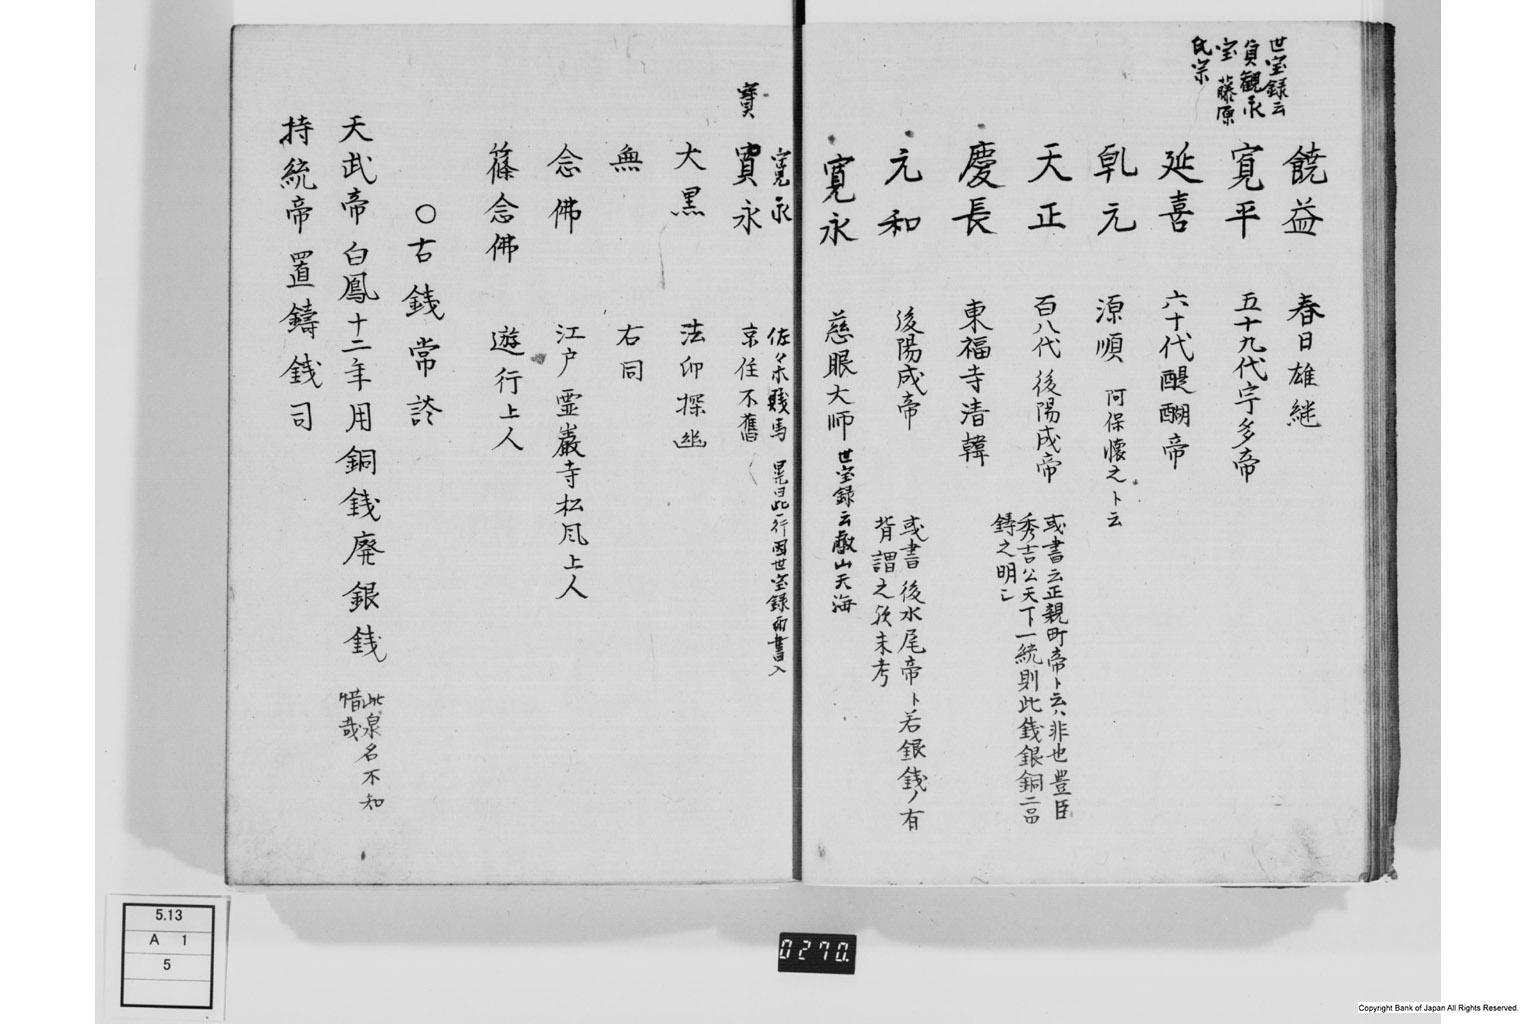 世宝録云
貞観永
宝 藤原
氏宗
饒益 春日雄継
寛平 五十九代宇多帝
延喜 六十代醍醐帝
乹元 源順 阿保懐之ト云
天正 百八代後陽成帝 或書云正親町帝ト云ハ非也豊臣
秀吉公天下一統則此銭銀銅二品
鋳之明シ
慶長 東福寺清韓
元和 後陽成帝 或書後水尾帝ト若銀銭ノ有
背謂之欤未考
寛永 慈眼大师 世宝録云叡山天海
寛永 佐々木賤馬 晃曰此一行因世宝録而書入
寳
寳永 京住不舊
大黒 法印探幽
無 右同
念佛 江戸霊巌寺松風上人
篠念佛 遊行上人
〇古銭常談
天武帝白鳳十二年用銅銭廃銀銭 此泉名不知
惜哉
持統帝置鑄銭司
5.13
A 1
5
0270.
Copyright Bank of Japan All Rights Reserved.